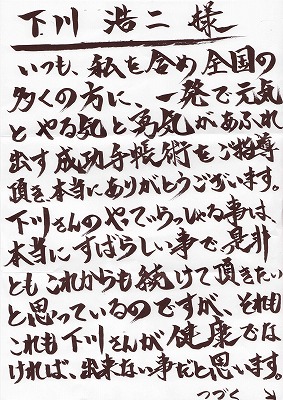 下川 浩二 様
いつも、私を含め全国の
多くの方に、一発で元気
とやる気と勇気があふれ
出す成功手帳術をご指導
頂き、本当にありがとうございます。
下川さんのやっていらっしゃる事は、
本当にすばらしい事で是非
ともこれからも続けて頂きたい
と思っているのですが、それも
これも下川さんが健康でな
ければ、出来ない事だと思います。
つづく ↘